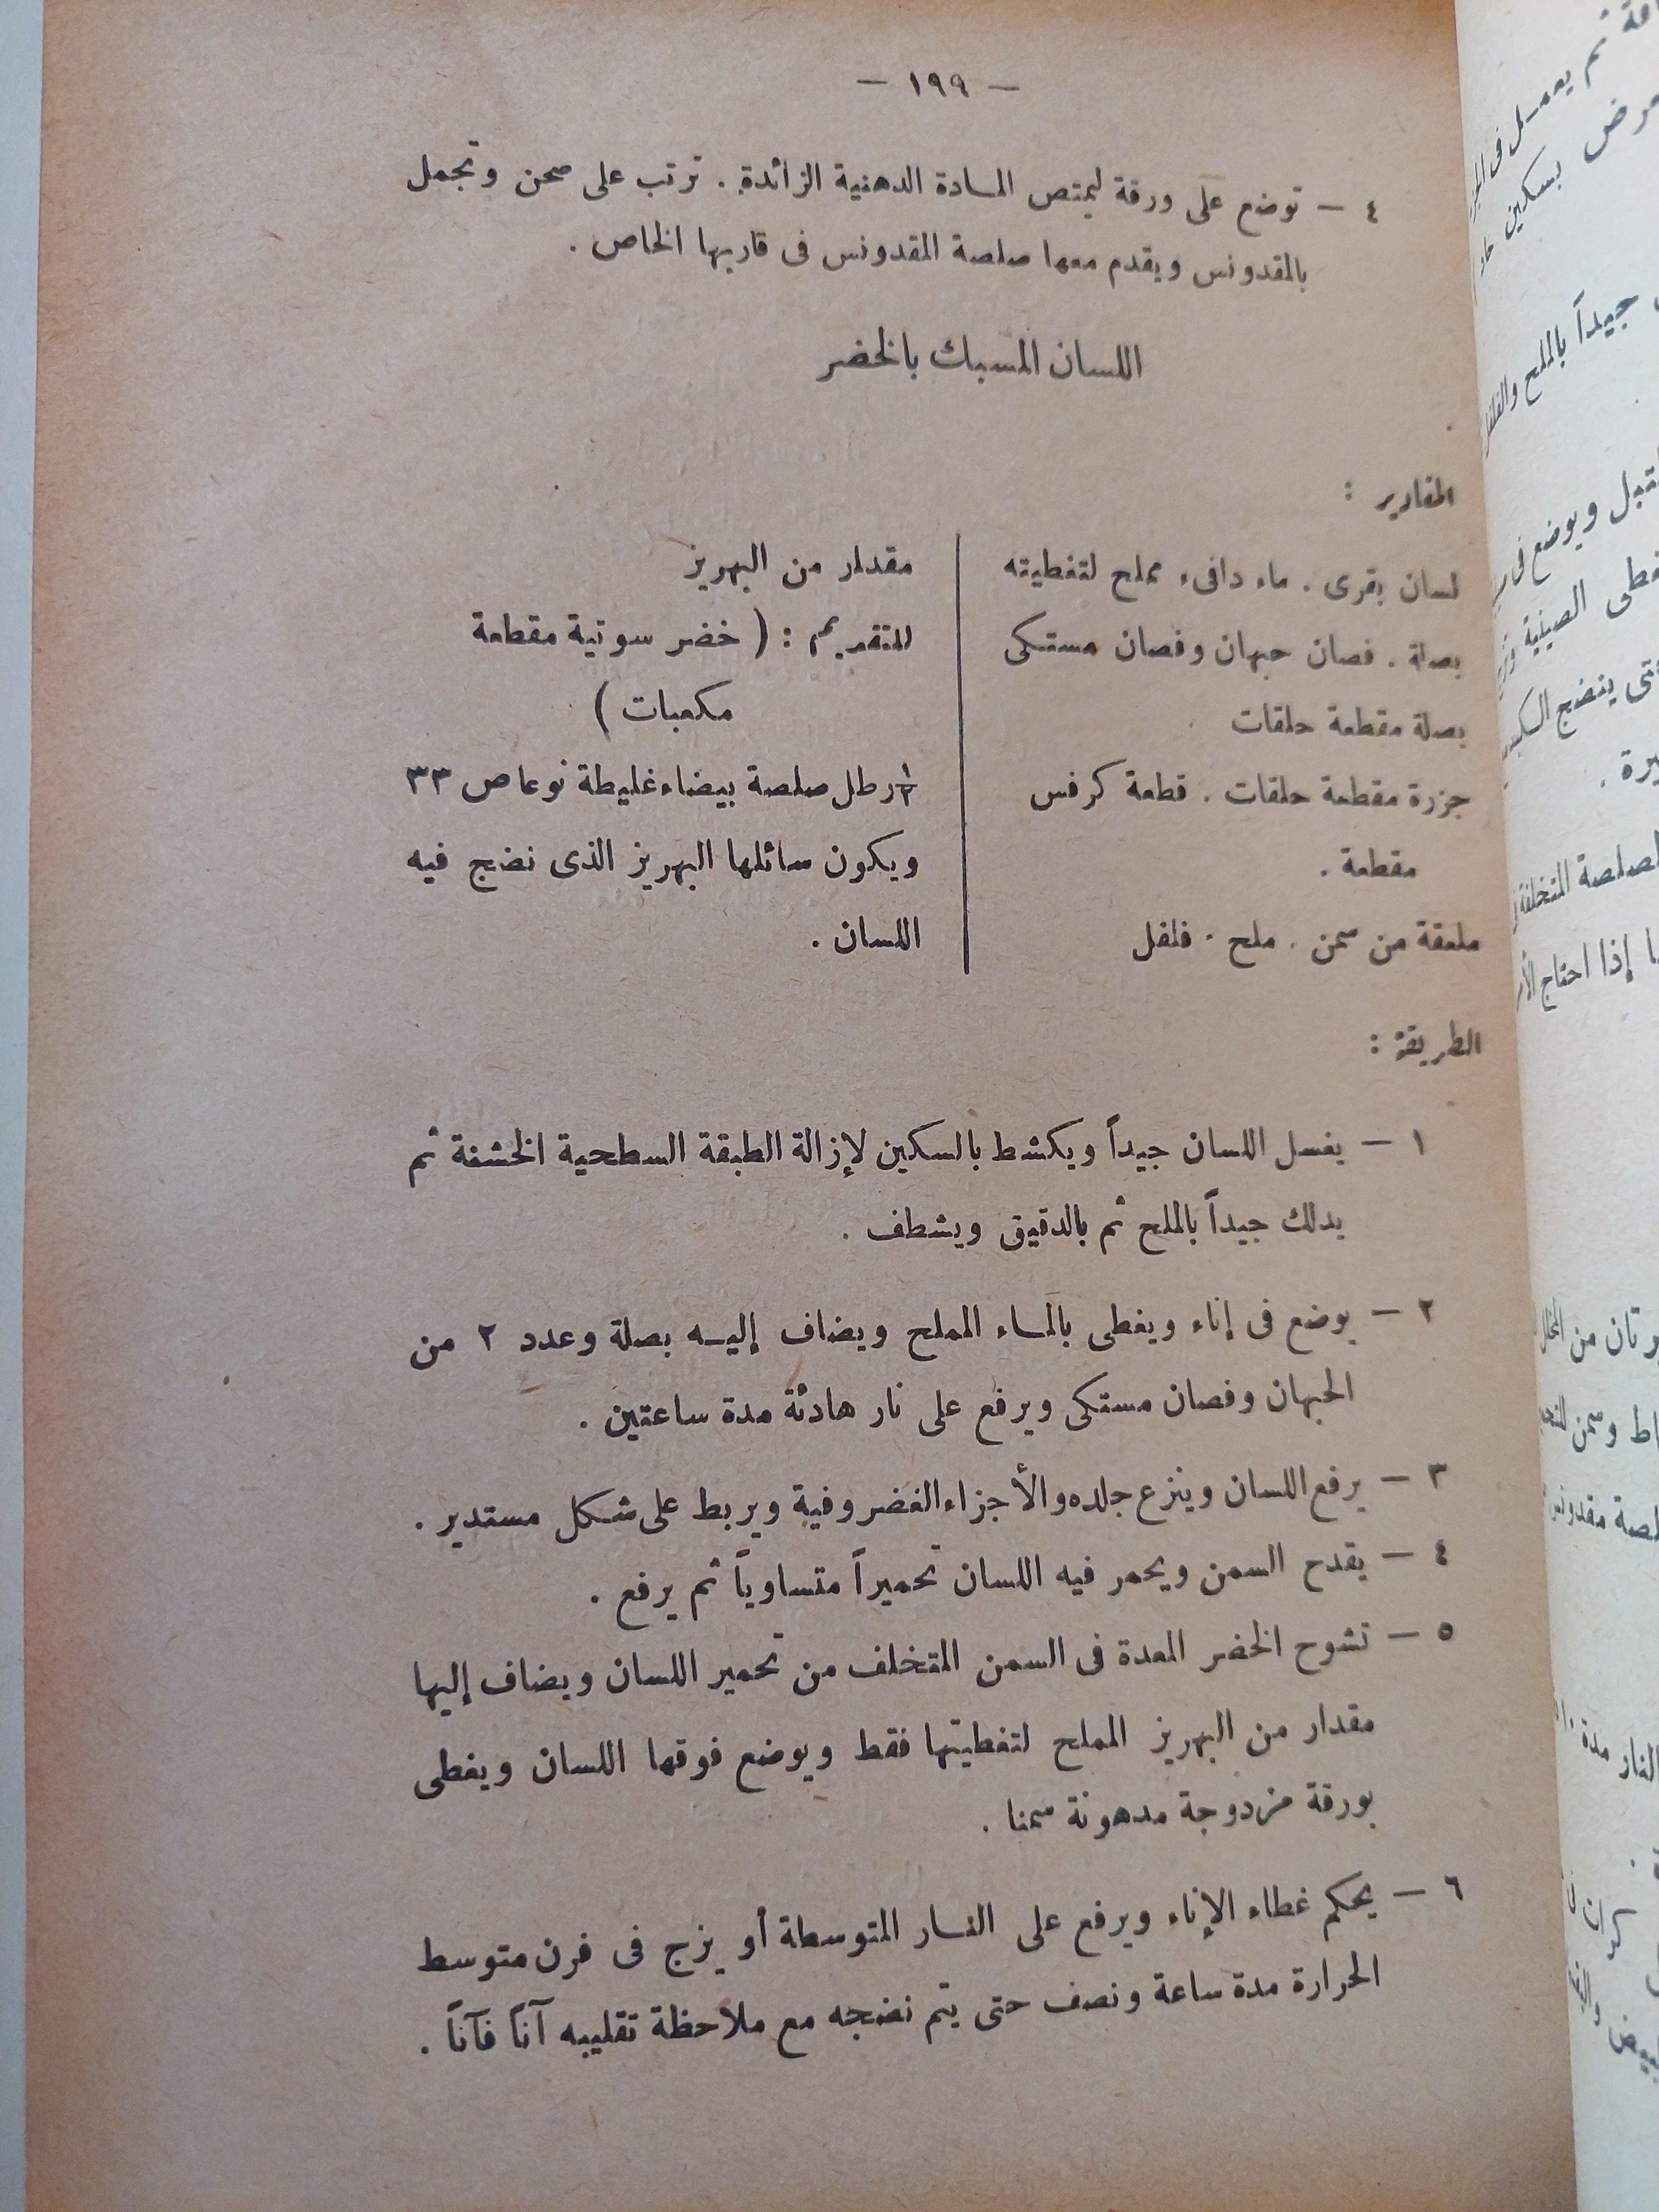 — ١٩٩ —
٤ — توضع على ورقة ليمتص المادة الدهنية الزائدة . ترتب على صحن وتجمل
بالمقدونس ويقدم معها صلصة المقدونس فى قاربها الخاص .
اللسان المسبك بالخضر
المقادير :
لسان بقرى . ماء دافىء مملح لتغطيته
بصلة . فصان حبهان وفصان مستكى
بصلة مقطعة حلقات
جزرة مقطعة حلقات . قطعة كرفس
مقطعة .
ملعقة من سمن . ملح . فلفل
مقدار من البهريز
للتقديم : ( خضر سوتية مقطعة
مكعبات )
رطل صلصة بيضاء غليطة نوعا ص ٣٣
ويكون سائلها البهريز الذى نضج فيه
اللسان .
الطريقة :
١ — يغسل اللسان جيداً ويكشط بالسكين لإزالة الطبقة السطحية الخشنة ثم
يدلك جيداً بالملح ثم بالدقيق ويشطف .
٢ — يوضع فى إناء ويغطى بالماء المملح ويضاف إليه بصلة وعدد ٢ من
الحبهان وفصان مستكى ويرفع على نار هادئة مدة ساعتين .
٣ — يرفع اللسان وينزع جلده والأجزاء الغضروفية ويربط على شكل مستدير .
٤ — يقدح السمن ويحمر فيه اللسان تحميراً متساوياً ثم يرفع .
٥ — تشوح الخضر المعدة فى السمن المتخلف من تحمير اللسان ويضاف إليها
مقدار من البهريز المملح لتغطيتها فقط ويوضع فوقها اللسان ويغطى
بورقة مزدوجة مدهونة سمنا .
٦ — يحكم غطاء الإناء ويرفع على النار المتوسطة أو يزج فى فرن متوسط
الحرارة مدة ساعة ونصف حتى يتم نضجه مع ملاحظة تقليبه آناً فآناً .
ثم يعمل فى
بسكين
جيداً بالملح والفلفل
ويوضع فى
الصينية
ينضج
الصلصة المتخلفة
إذا احتاج
من
وسمن
النار مدة